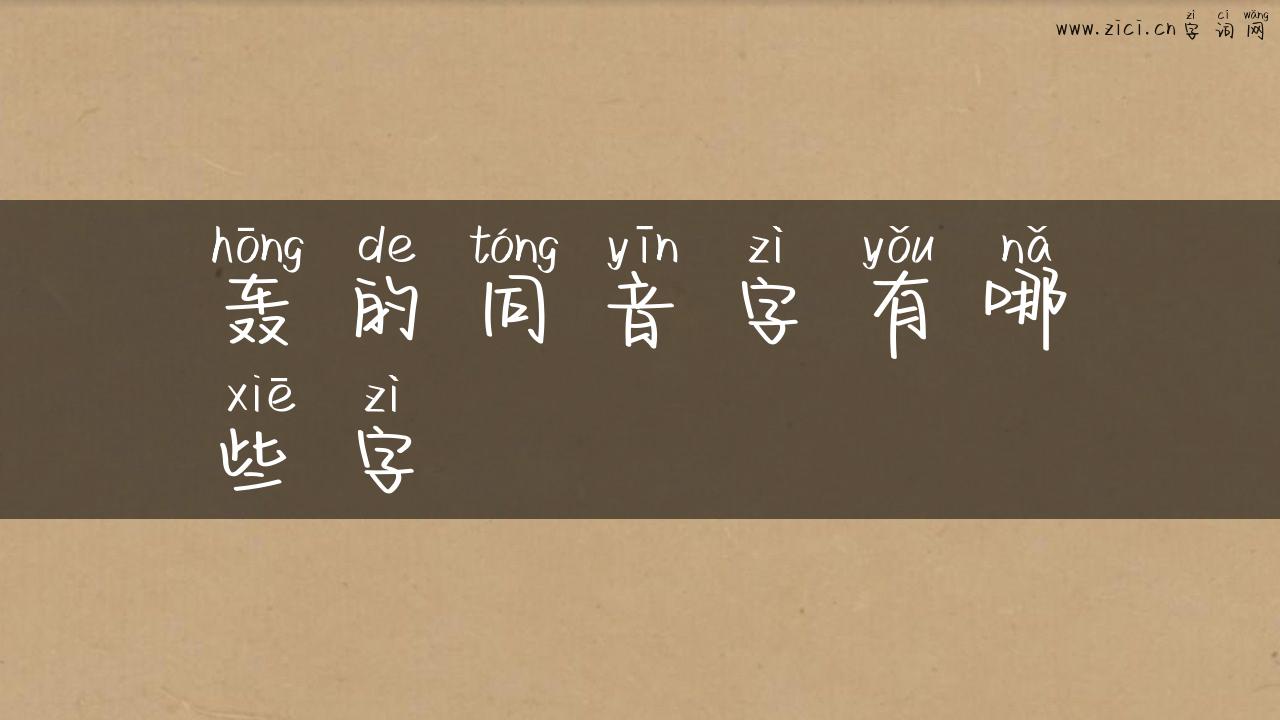 www.zici.cn字词网
zì cí wǎng
hōng de tóng yīn zì yǒu nǎ
轰的同音字有哪
xiē zì
些字